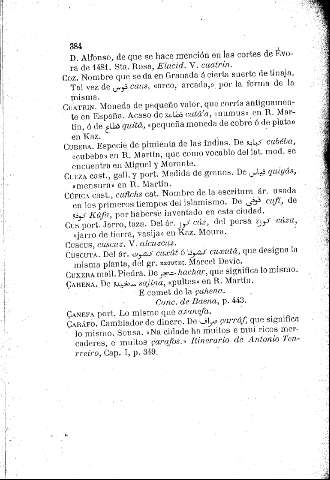 384
D. Alfonso, de que se hace mención en las cortes de Évo-
ra de 1481. Sta. Rosa, Elucid. V. cuatrin.
COZ. Nombre que se da en Granada á cierta suerte de tinaja.
Tal vez de قوس caus, «arco, arcada,» por la forma de la
misma.
CUATRIN. Moneda de pequeño valor, que corría antiguamen-
te en España. Acaso de «numus» en R. Mar-
tin, ó de quitâ, «pequeña moneda de cobre ó de plata»
en Kaz.
CUBEBA. Especie de pimienta de las Indias. De كبابة cabéba,
«cubeba» en R. Martin, que como vocablo del lat. mod. se
encuentra en Miguel y Morante.
cast., gall. y port. Medida de granos. De قياس quiyás,
«mensura» en R. Martin.
CÚFICA cast., cat. Nombre de la escritura ár. usada
en los primeros tiempos del islamismo. De كوفي cufí, de
كوفة Kúfa, por haberse inventado en esta ciudad.
port. Jarro, taza. Del ár. كوز cúz, del persa كوزه cúza,
«jarro de tierra, vasija» en Kaz. Moura.
CUSCUS, cuscuz. V. alcuscuz.
CUSCUTA. Del ár. cuxút ó cuxutá, que designa la
misma planta, del gr. Marcel Devic.
CUXERA mall. Piedra. De حجر hachar, que significa lo mismo.
ÇAHENA. De سخينة sajina, «pultes» en R. Martin.
E comet de la çahena.
Conc. de Baena, p. 443.
ÇANEFA port. Lo mismo que azanefa.
ÇARÁFO. Cambiador de dinero. De صراف çarráf, que significa
lo mismo. Sousa. «Na cidade ha muitos e mui ricos mer-
caderes, e muitos çarafos.» Itinerario de Antonio Ten-
rreiro, Cap. I, p. 349.